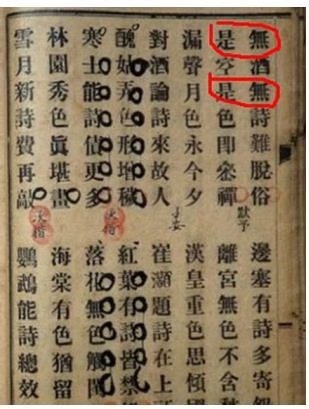 無酒無詩難脫俗
是空是色即參禪
默予
漏聲月色永今夕
對酒論詩來故人
醜姑弄色形堪穢
寒士能詩債更多
林園秀色眞堪畫
雪月新詩費再敲
邊塞有詩多寄
離宮無色不含
漢皇重色思傾國
崔灝題詩在上
紅葉有詩皆禁
落花無色
海棠有色猶留
鸚鵡能詩總效